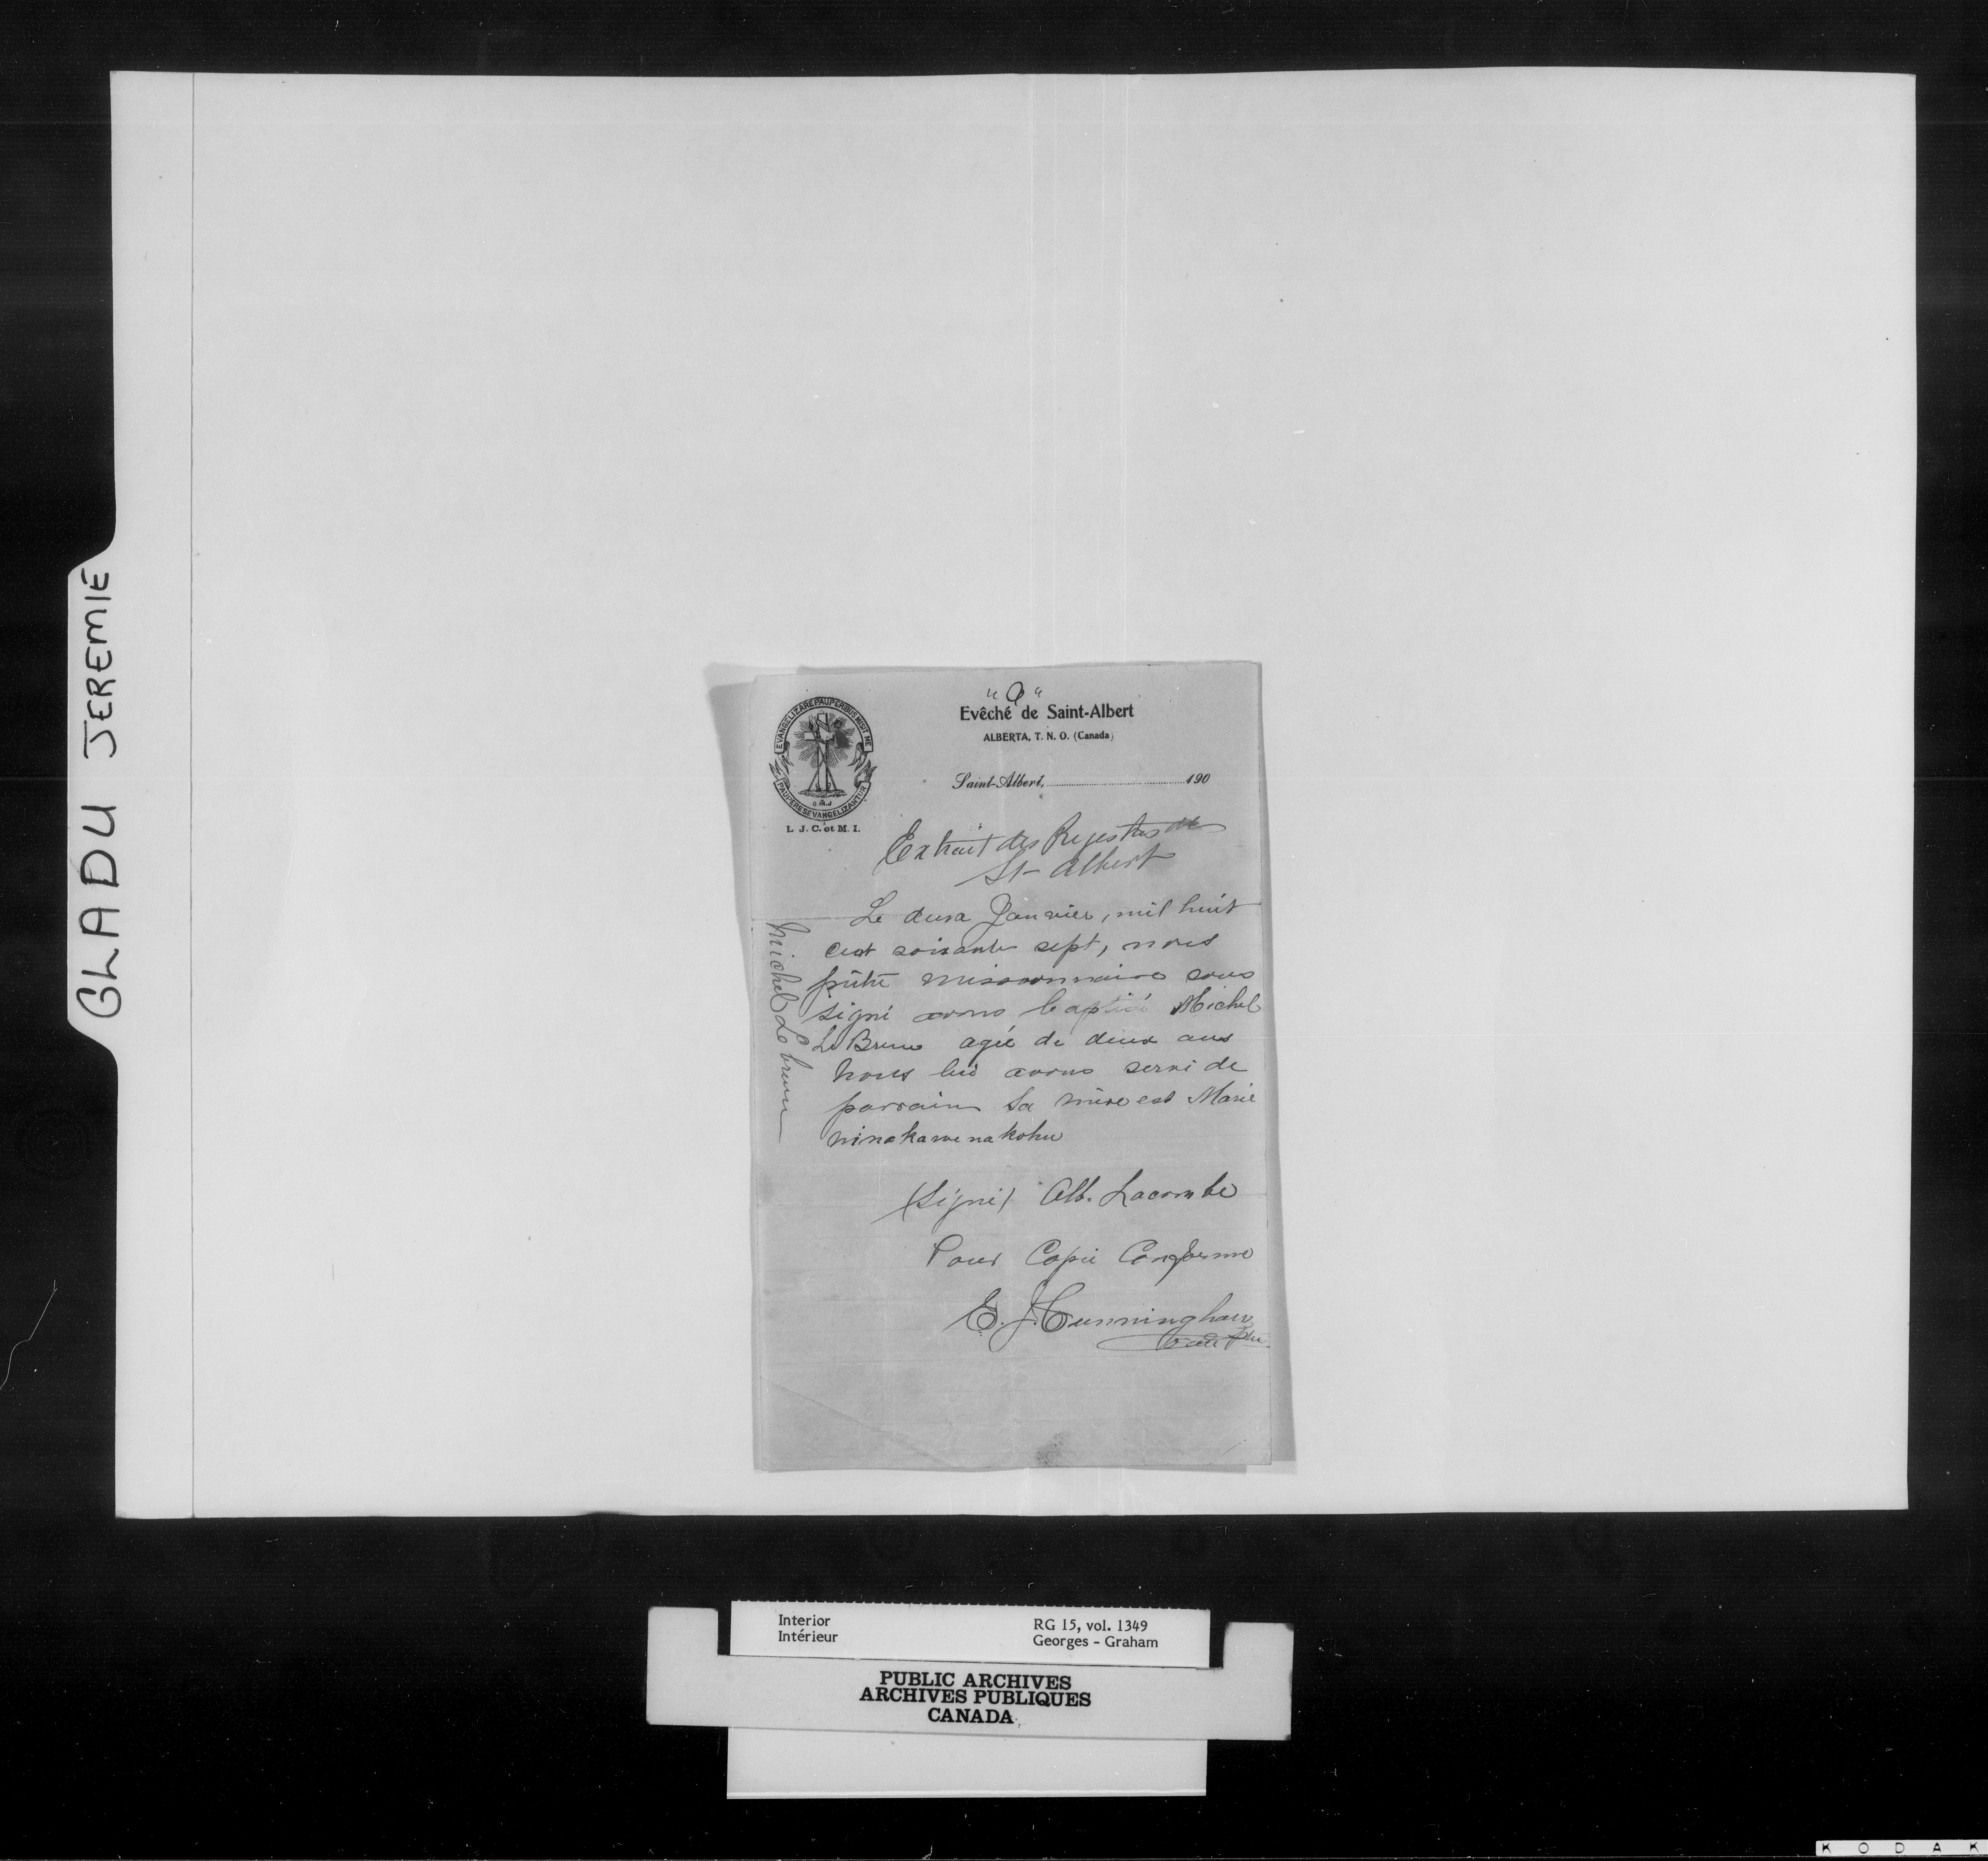 GLADU JEREMIE
"a"
EVANGELIZARE PAUPERIBUS MISIT ME
PAUPERES EVANGELIZANTUR
O.M.J
L. J. C. et M. I.
Evêché de Saint-Albert
ALBERTA, T. N. O. (Canada)
Saint-Albert, 190
Extrait des Rejestres de
St-Albert
Michel Lebrun
Le deux Janvier, mil huit
cent soixante sept, nous
prêtre missionnaire sous
signé avons baptisé Michel
Le Brun agée de deux ans
Nous lui avons servi de
parrain Sa mère est Marie
(Signé) Alb. Lacombe
Pour Copie Conforme
E. J. Cunningham
Interior
Intérieur
RG 15, vol. 1349
Georges - Graham
PUBLIC ARCHIVES
ARCHIVES PUBLIQUES
CANADA
KODAK